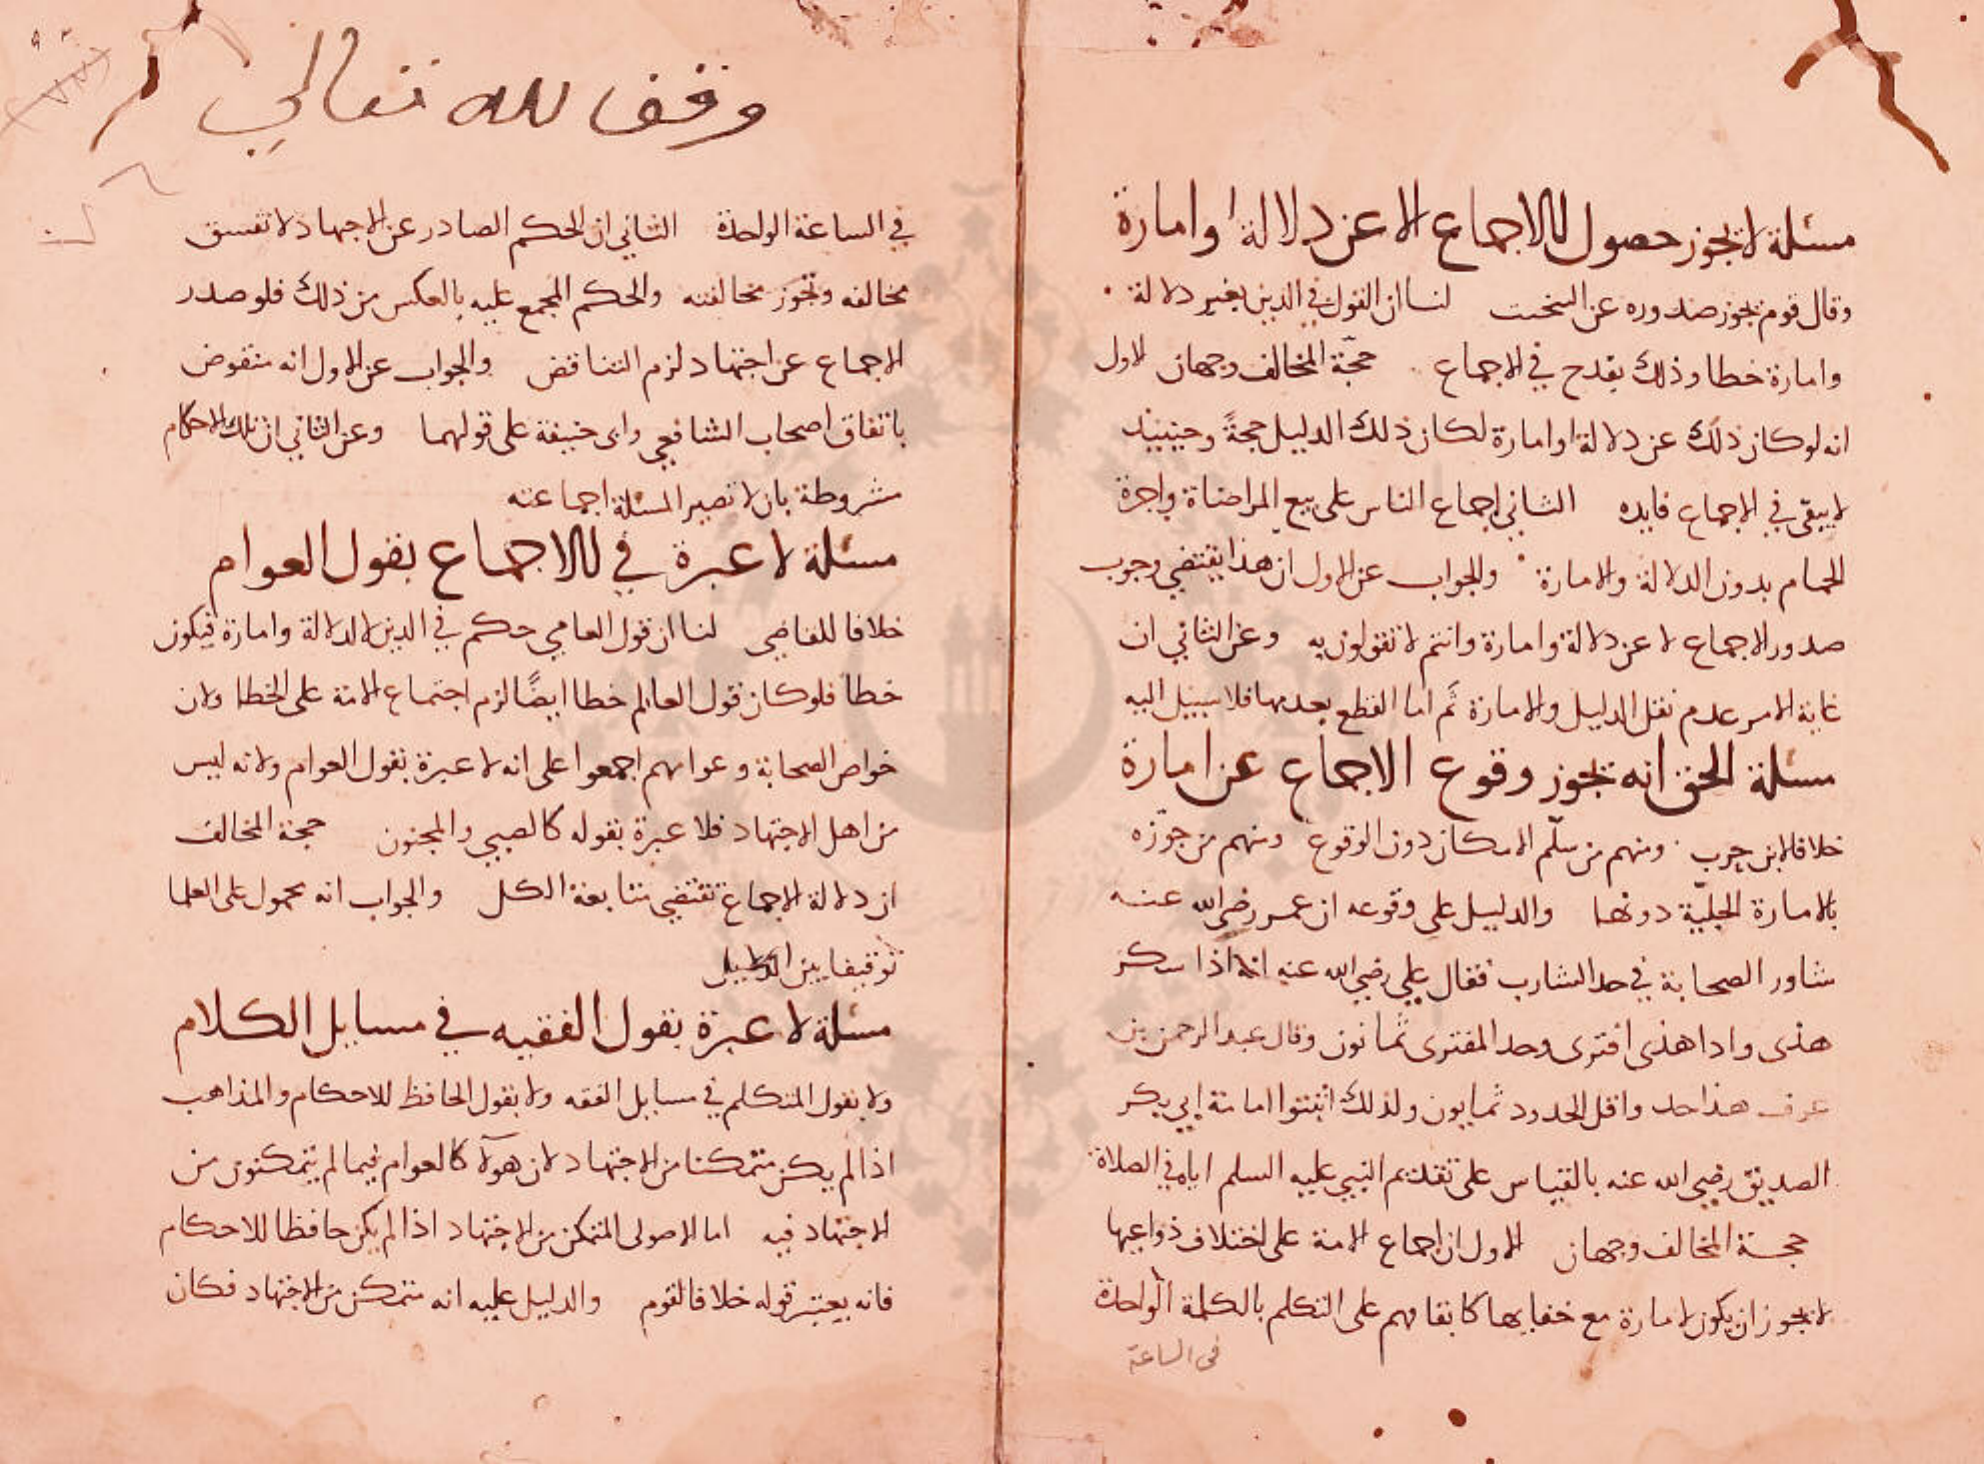 مسئلة لا يجوز حصول الاجماع الا عن دلالة او امارة
وقال قوم يجوز صدوره عن البخت لنا ان القول في الدين بغير دلالة
وامارة خطا وذلك يقدح في الاجماع حجّة المخالف وجهان الاول
انه لو كان ذلك عن دلالة او امارة لكان ذلك الدليل حجةً وحينيذ
لا يبقى في الاجماع فايده الثاني اجماع الناس على بيع المراضاة واجرة
الحمام بدون الدلالة والامارة والجواب عن الاول ان هذا يقتضي وجوب
صدور الاجماع لا عن دلالة وامارة وانتم لا تقولون به وعن الثاني ان
غاية الامر عدم نقل الدليل والامارة ثَم اما القطع بعدمها فلا سبيل اليه
مسئلة الحق انه يجوز وقوع الاجماع عن امارة
خلافا لابن جرب ومنهم من سلّم الامكان دون الوقوع ومنهم من جوّزه
بالامارة الجليّة دونها والدليل على وقوعه ان عمر رضي الله عنه
شاور الصحابة في حد الشارب فقال علي رضي الله عنه انه اذا سكر
هذى واذا هذى افترى وحد المفترى ثمانون وقال عبد الرحمن بن
عوف هذا حد واقل الحدود ثمانون ولذلك اثبتوا امامة ابي بكر
الصديق رضي الله عنه بالقياس على تقديم النبي عليه السلم اياه في الصلاة
حجة المخالف وجهان الاول ان اجماع الامة على اختلاف دواعيها
لا يجوز ان يكون لامارة مع خفايها كاتفاقهم على التكلم بالكلمة الواحدة
في الساعة
وقف لله تعالى
في الساعة الواحدة الثاني ان الحكم الصادر عن الاجتهاد لا تفسق
مخالفه وتجوز مخالفته والحكم المجمع عليه بالعكس من ذلك فلو صدر
الاجماع عن اجتهاد لزم التناقض والجواب عن الاول انه منقوض
باتفاق اصحاب الشافعي وابي حنيفة على قولهما وعن الثاني ان تلك الاحكام
مشروطة بان لا تصير المسئلة اجماعته
مسئلة لا عبرة في الاجماع بقول العوام
خلافا للقاضي لنا ان قول العامي حكم في الدين لا لدلالة وامارة فيكون
خطا فلو كان قول العالم خطا ايضًا لزم اجتماع الامة على الخطا ولان
خواص الصحابة وعوامهم اجمعوا على انه لا عبرة بقول العوام ولانه ليس
من اهل الاجتهاد فلا عبرة بقوله كالصبي والمجنون حجة المخالف
ان دلالة الاجماع تقتضي متابعة الكل والجواب انه محمول على العلما
توفيقا بين
مسئلة لا عبرة بقول الفقيه في مسايل الكلام
ولا بقول المتكلم في مسايل الفقه ولا بقول الحافظ للاحكام والمذاهب
اذا لم يكن متمكنا من الاجتهاد لان هؤلآ كالعوام فيما لم يتمكنون من
الاجتهاد فيه اما الاصولى المتمكن من الاجتهاد اذا لم يكن حافظا للاحكام
فانه يعتبر قوله خلافا لقوم والدليل عليه انه متمكن من الاجتهاد فكان